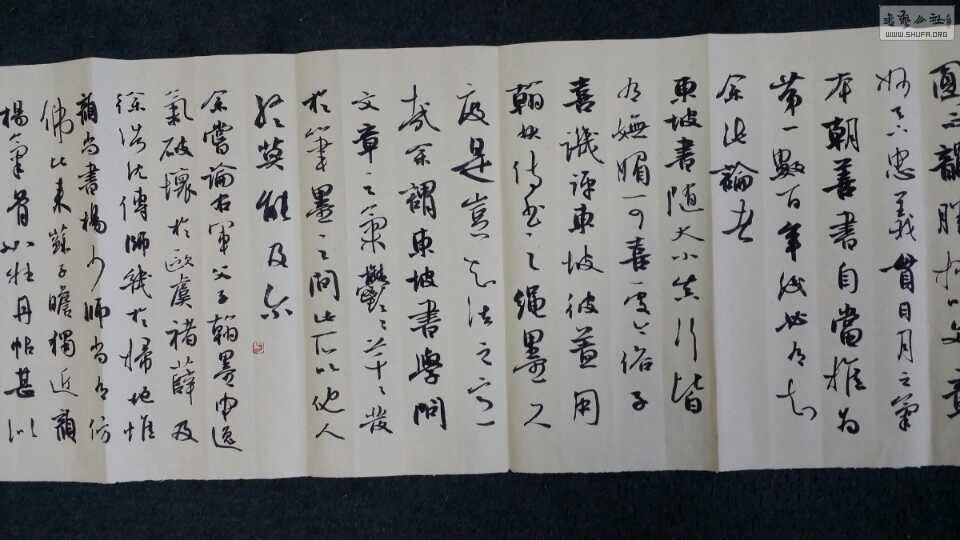 圓而韻勝挾以文章
妙天下忠義貫日月之氣
本朝善書自當推為
第一數百年後必有知
余此論者
東坡書隨大小真行皆
有嫵媚可喜處今俗子
喜譏評東坡彼蓋用
翰林侍書之繩墨尺
度是豈知法之意
哉余謂東坡書學問
文章之氣鬱〻芊〻發
於筆墨之間此所以他人
終莫能及尔
余嘗論右軍父子翰墨中逸
氣破壞於歐虞褚薛及
徐浩沈傳師幾於掃地惟
顏尚書楊少師尚有仿
佛比來蘇子瞻獨近顏
楊氣骨如牡丹帖甚似
書藝公社
WWW.SHUFA.ORG